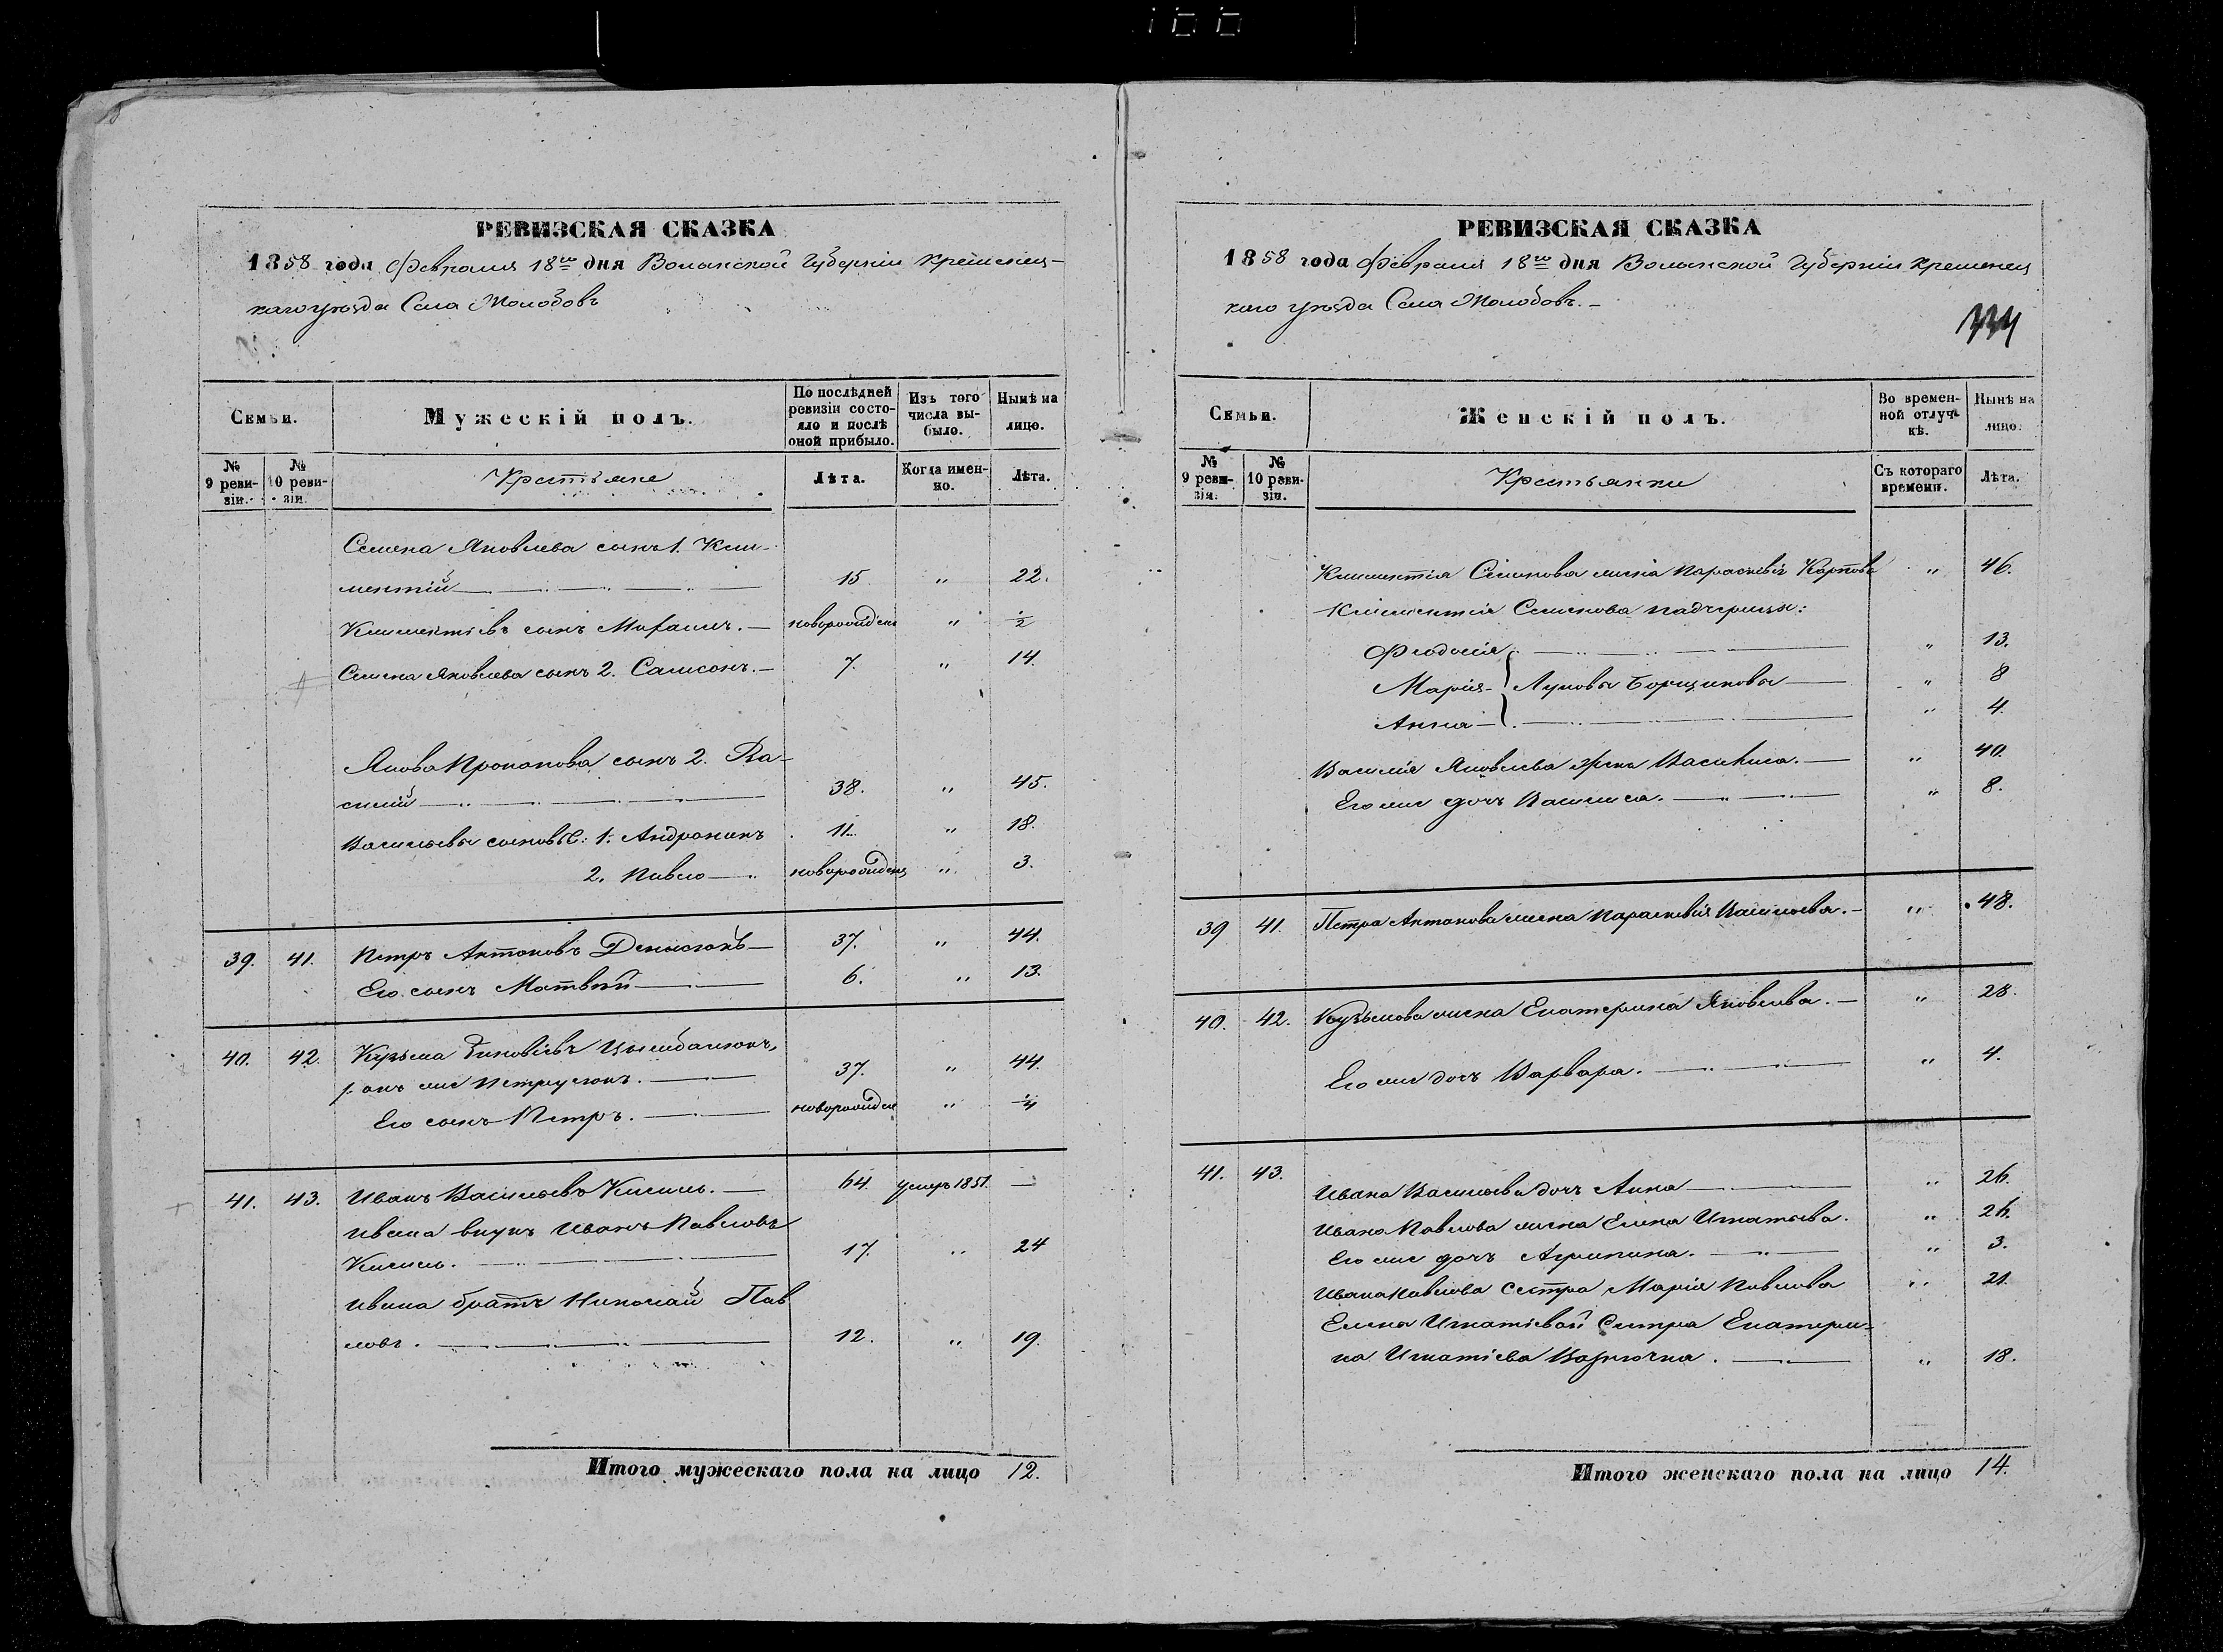 РЕВИЗСКАЯ СКАЗКА
1858 года Февраля 18го дня Волынской Губерніи Кременец-
каго уѣзда Села Молодовъ
Семьи.
Мужескій полъ.
По послѣдней ревизіи состояло и послѣ оной прибыло.
Изъ того числа выбыло.
Нынѣ на лицо.
№ 9 ревизіи.
№ 10 ревизіи.
Крестьяне
Лѣта.
Когда именно.
Лѣта.
Семена Яковлева сынъ 1. Кли-
ментій 15 " 22.
Климентіевъ сынъ Михаилъ. новорожден " ½
Семена Яковлева сынъ 2. Самсонъ. 7. " 14.
Якова Прокопова сынъ 2. Ва-
силій 38. " 45.
Васильевы сыновья: 1. Андроникъ 11. " 18.
2. Павло новорожден " 3.
39. 41. Петръ Антоновъ Денисюкъ 37. " 44.
Его сынъ Матвѣй 6. " 13.
40. 42. Кузьма Зиновіевъ Цымбалюкъ,
онъ же Петрусюкъ. 37. " 44.
Его сынъ Петръ. новорожден " ¼
41. 43. Иванъ Васильевъ Кисиль. 64. умеръ 1851. —
Ивана внукъ Иванъ Павловъ
Кисиль. 17. " 24
Ивана братъ Николай Пав
ловъ. 12. " 19.
Итого мужескаго пола на лицо 12.
РЕВИЗСКАЯ СКАЗКА
1858 года Февраля 18го дня Волынской Губерніи Кременец
каго уѣзда Села Молодовъ.
Семьи.
Женскій полъ.
Во временной отлучкѣ.
Нынѣ на лицо.
№ 9 ревизіи.
№ 10 ревизіи.
Крестьянки
Съ котораго времени.
Лѣта.
Климентія Семенова жена Параскевія Карпова " 46.
Климентія Семенова падчерицы:
Феодосія " 13.
Марія Лукова Борщикова " 8
Анна " 4.
Василія Яковлева жена Василиса. " 40.
Его же дочь Василиса. " 8.
39 41. Петра Антонова жена Параскевія Васильева. " 48.
40. 42. Кузьмова жена Екатерина Яковлева. " 28.
Его же дочь Варвара. " 4.
41. 43. Ивана Васильева дочь Анна " 26.
Ивана Павлова жена Елена Игнатьева. " 26.
Его же дочь Агрипина. " 3.
Ивана Павлова сестра Марія Павлова " 21.
Елена Игнатіевой Сестра Екатери-
на Игнатіева " 18.
Итого женскаго пола на лицо 14.